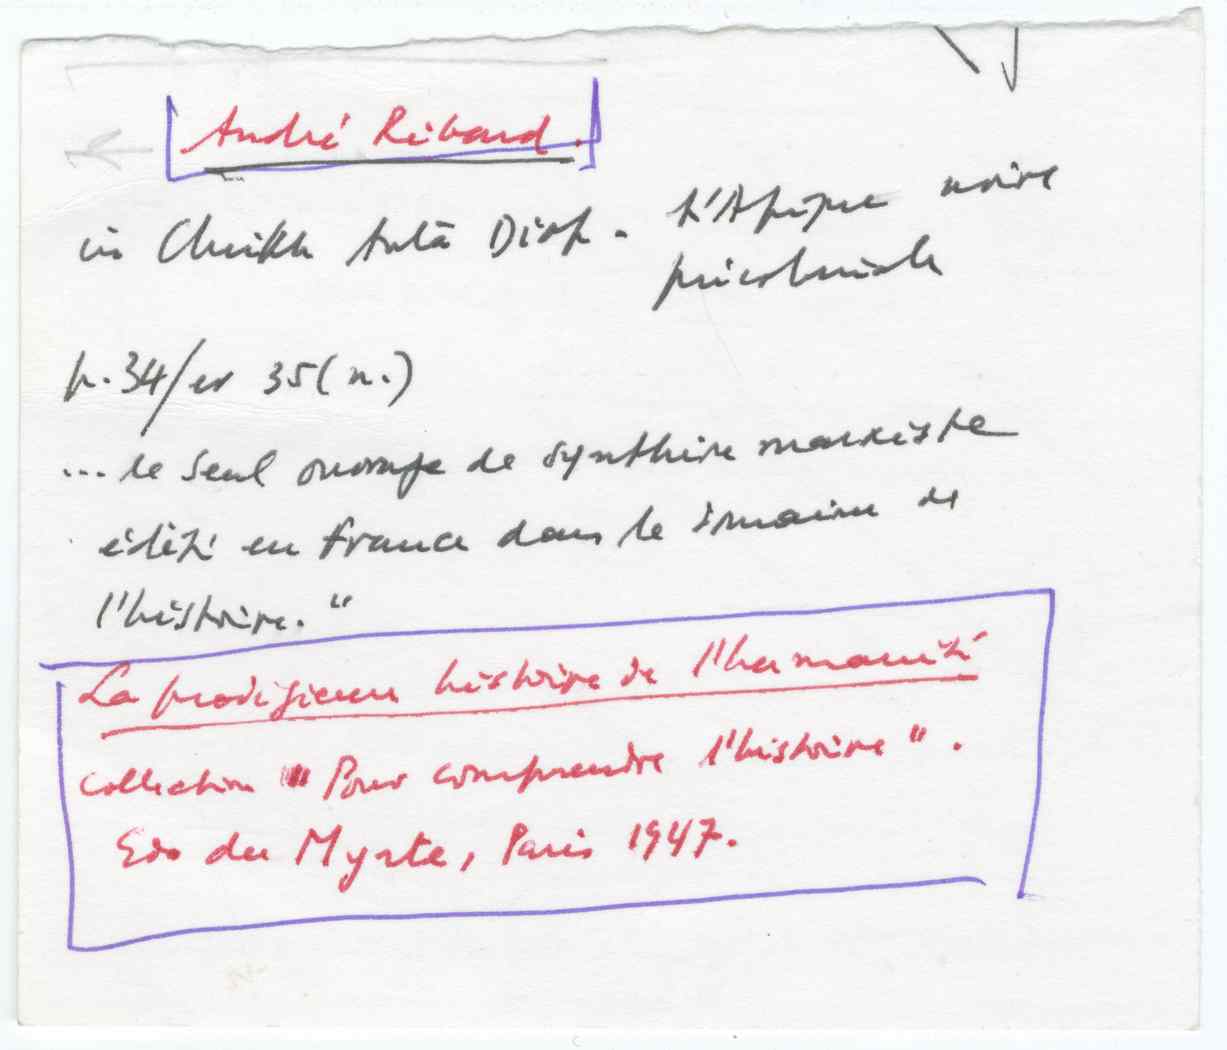 André Ribard.
in Cheikh Anta Diop. L'Afrique noire
précoloniale
p. 34/et 35(n.)
... le seul ouvrage de synthèse marxiste
édité en France dans le domaine de
l'histoire."
La prodigieuse histoire de l'humanité
collection "Pour comprendre l'histoire".
Eds du Myrte, Paris 1947.